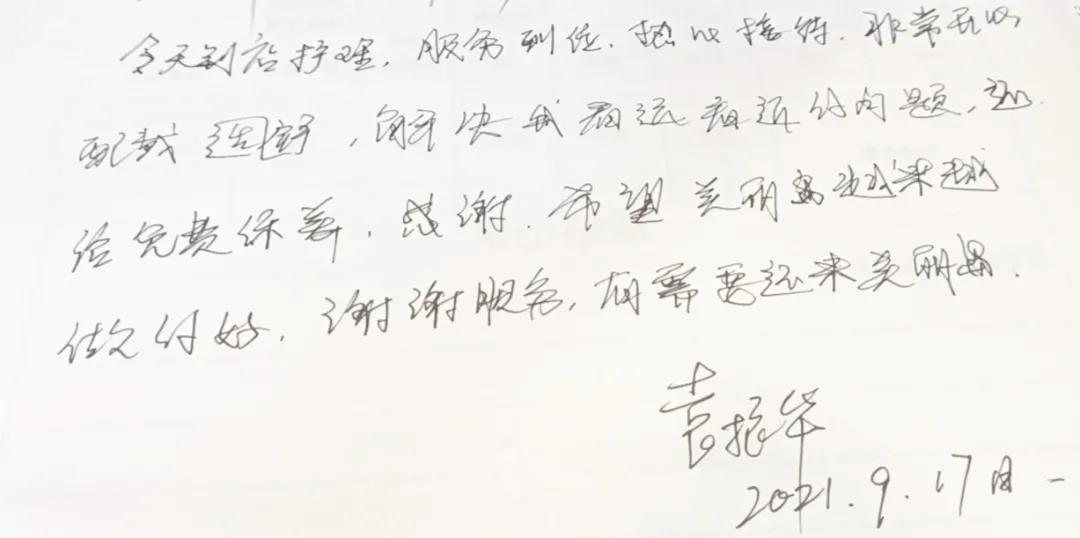 今天到店护理,服务到位.热心接待.非常开心
配戴适宜,解决我看远看近的问题,还
给免费保养.感谢.希望美丽岛越来越
做的好.谢谢服务,有需要还来美丽岛.
袁振华
2021.9.17日